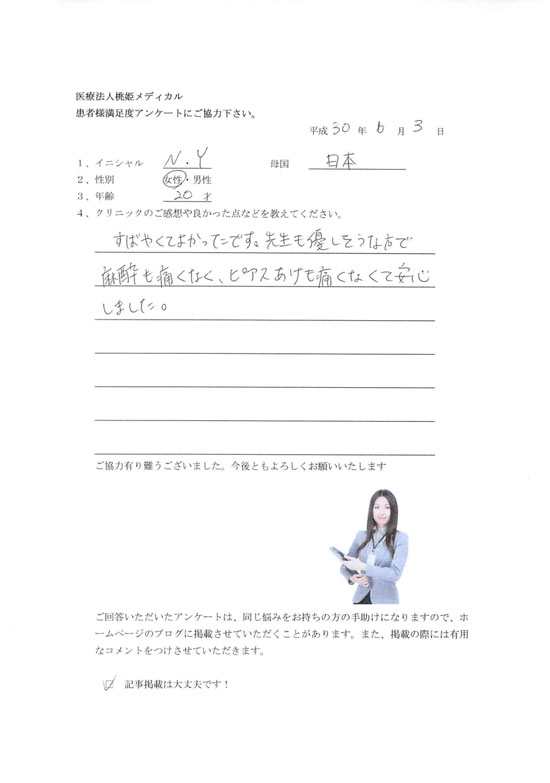 医療法人桃姫メディカル
患者様満足度アンケートにご協力下さい。
平成 30 年 6 月 3 日
1、イニシャル N.Y 母国 日本
2、性別 女性・男性
3、年齢 20 才
4、クリニックのご感想や良かった点などを教えてください。
すばやくてよかったです。先生も優しそうな方で
麻酔も痛くなく、ピアスあけも痛くなくて安心
しました。
ご協力有り難うございました。今後ともよろしくお願いいたします
ご回答いただいたアンケートは、同じ悩みをお持ちの方の手助けになりますので、ホ
ームページのブログに掲載させていただくことがあります。また、掲載の際には有用
なコメントをつけさせていただきます。
☑ 記事掲載は大丈夫です！